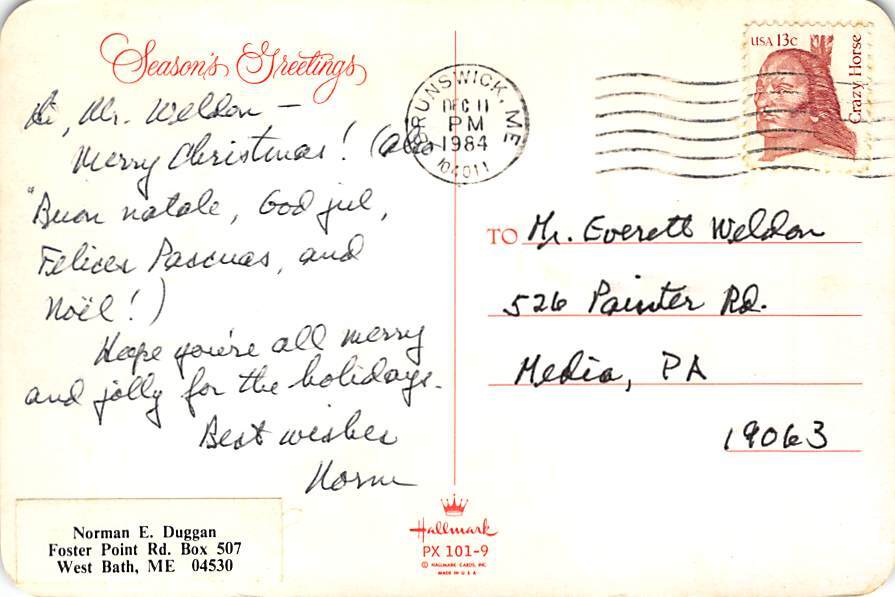 Season's Greetings
Hi, Mr. Weldon –
Merry Christmas! (Also
"Buon natale, God jul,
Felices Pascuas, and
Noël!)
Hope you're all merry
and jolly for the holidays.
Best wishes
Norm
Norman E. Duggan
Foster Point Rd. Box 507
West Bath, ME 04530
BRUNSWICK, ME
DEC 11
PM
1984
04011
USA 13c
Crazy Horse
TO Mr. Everett Weldon
526 Painter Rd.
Media, PA
19063
Hallmark
PX 101-9
© HALLMARK CARDS, INC.
MADE IN U S A